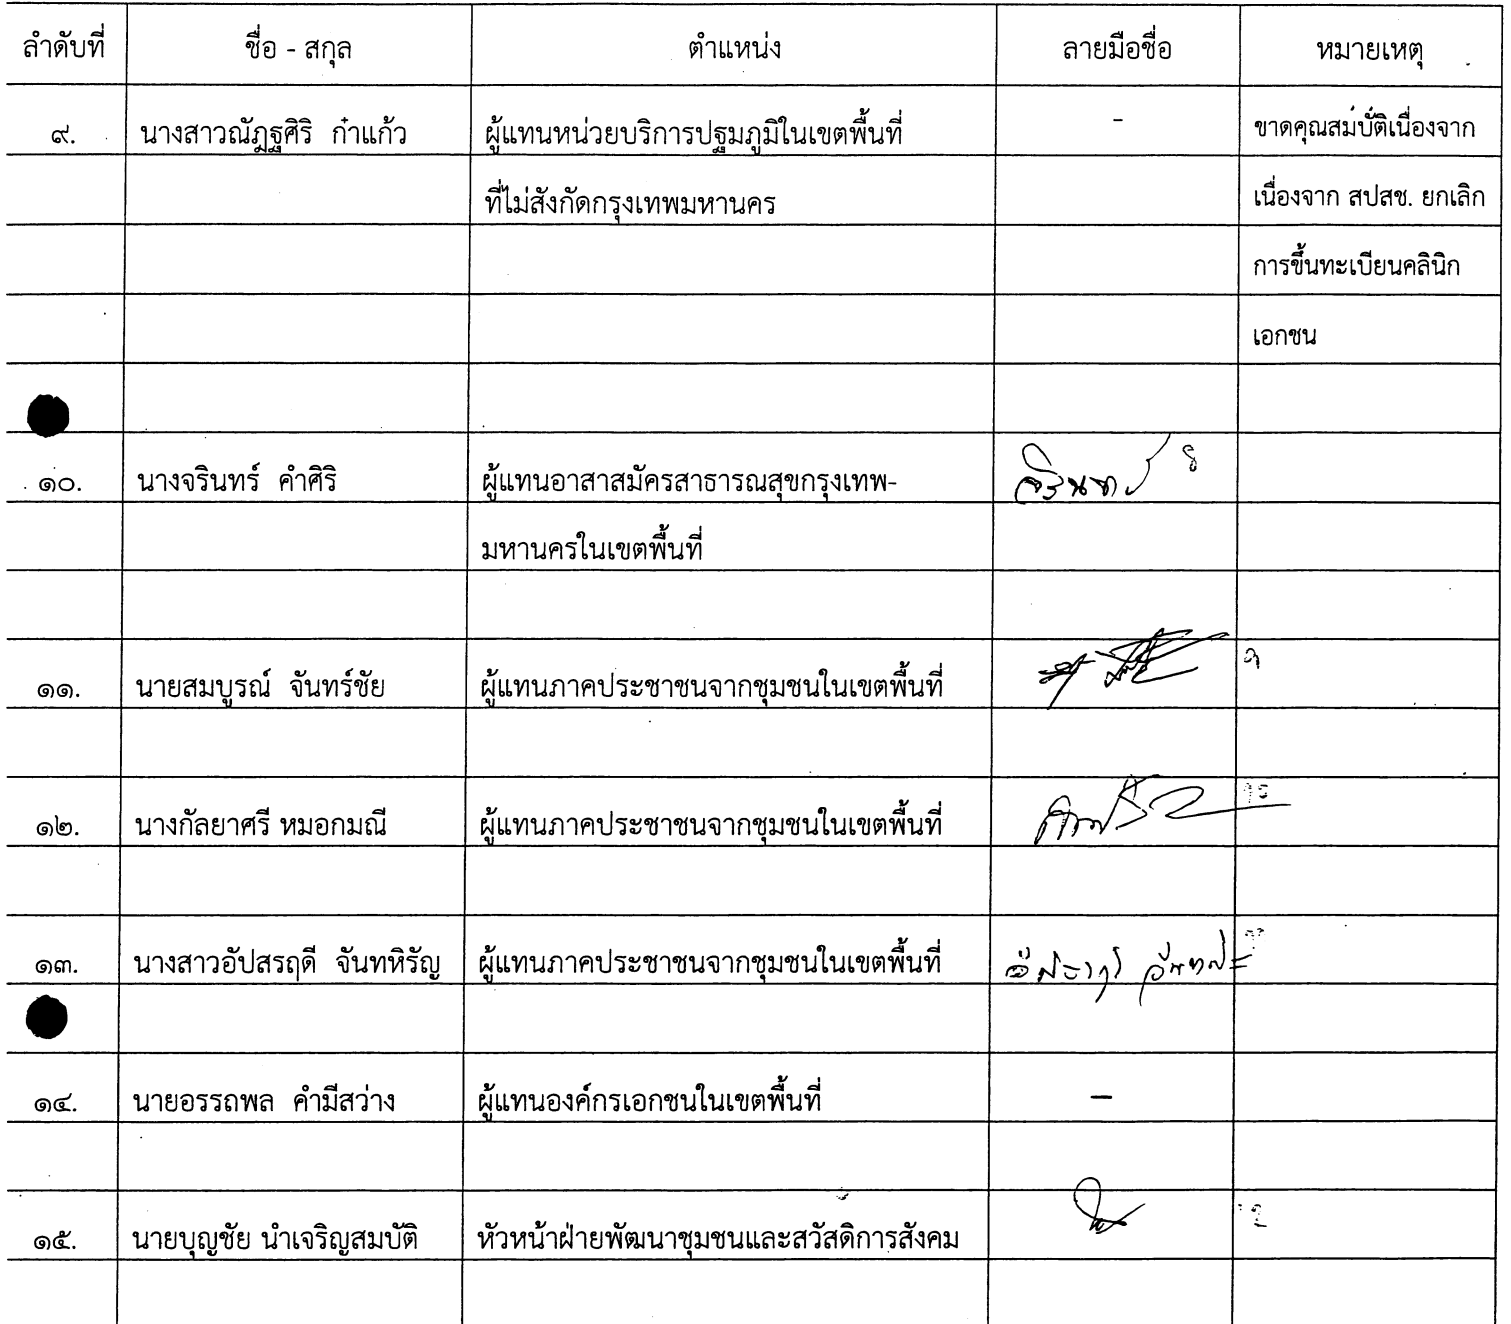 ลำดับที่ ชื่อ - สกุล ตำแหน่ง ลายมือชื่อ หมายเหตุ
๙. นางสาวณัฏฐศิริ ก๋าแก้ว ผู้แทนหน่วยบริการปฐมภูมิในเขตพื้นที่ - ขาดคุณสมบัติเนื่องจาก
ที่ไม่สังกัดกรุงเทพมหานคร เนื่องจาก สปสช. ยกเลิก
การขึ้นทะเบียนคลินิก
เอกชน
๑๐. นางจรินทร์ คำศิริ ผู้แทนอาสาสมัครสาธารณสุขกรุงเทพ- จรินทร์ ๘
มหานครในเขตพื้นที่
๑๑. นายสมบูรณ์ จันทร์ชัย ผู้แทนภาคประชาชนจากชุมชนในเขตพื้นที่
๑๒. นางกัลยาศรี หมอกมณี ผู้แทนภาคประชาชนจากชุมชนในเขตพื้นที่
๑๓. นางสาวอัปสรฤดี จันทหิรัญ ผู้แทนภาคประชาชนจากชุมชนในเขตพื้นที่
๑๔. นายอรรถพล คำมีสว่าง ผู้แทนองค์กรเอกชนในเขตพื้นที่ -
๑๕. นายบุญชัย นำเจริญสมบัติ หัวหน้าฝ่ายพัฒนาชุมชนและสวัสดิการสังคม